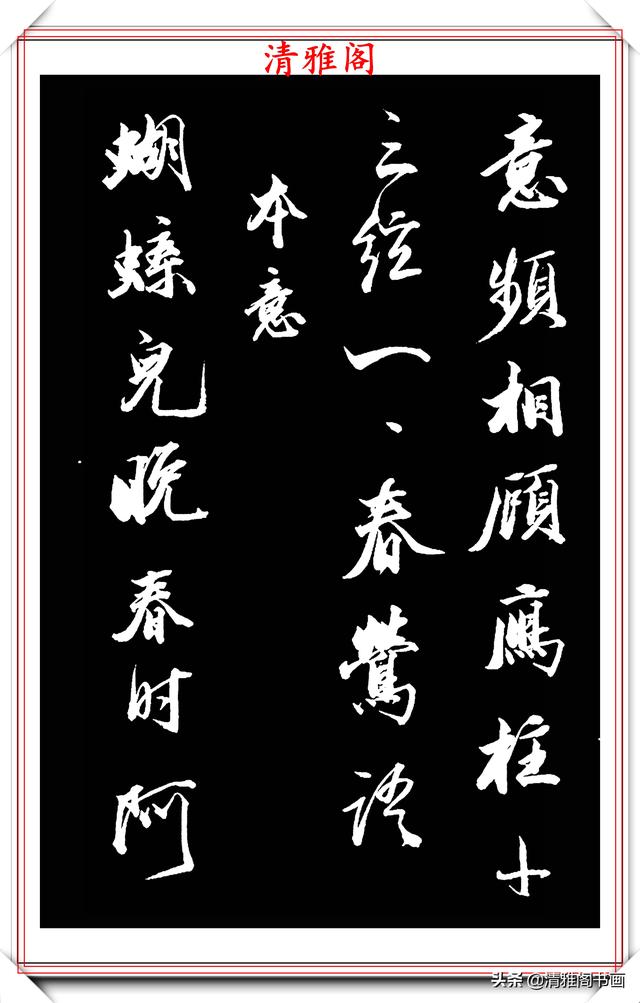 清雅阁
意頻相顧鴈柱十
三絃一、春鶯語
本意
蝴蝶兒晚春时阿
头条 @清雅阁书画